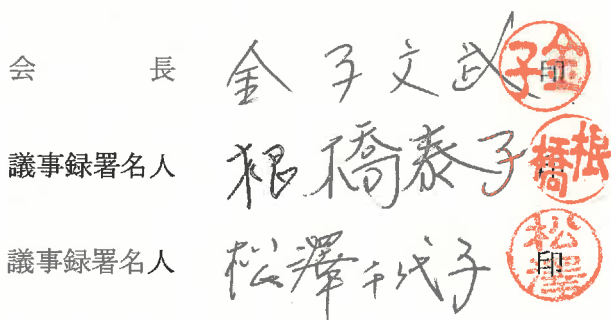 会長 金子文武 印
議事録署名人 根橋泰子 印
議事録署名人 松澤千代子 印